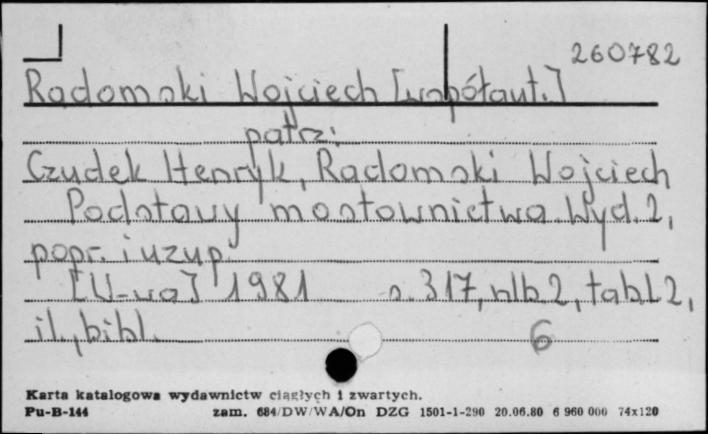 260782
Radomski Wojciech [współaut.]
patrz:
Czudek Henryk, Radomski Wojciech
Podstawy mostownictwa. Wyd. 2,
popr. i uzup.
[W-wa] 1981 s. 317, nlb 2, tabl. 2,
il., bibl.
6
Karta katalogowa wydawnictw ciągłych i zwartych.
Pu-B-144 zam. 684/DW/WA/On DZG 1501-1-290 20.06.80 6 960 000 74x120